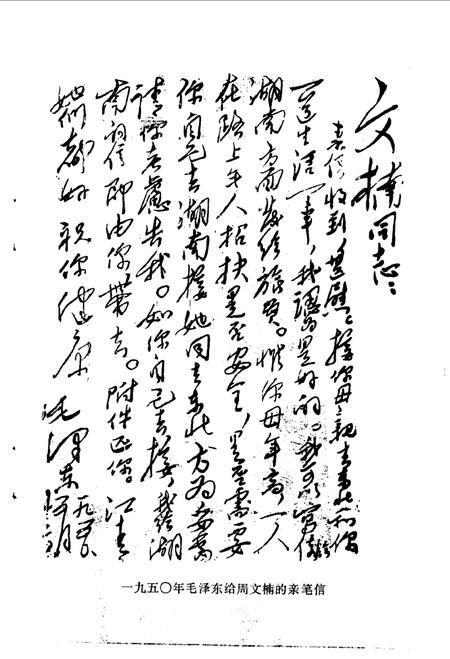 文楠同志：
来信收到，甚慰。接你母亲去东北和你
一道生活一事，我认为是好的。我可以写信给
湖南方面发给旅费。惟你母年高，一人
在路上无人招扶是否安全，是否需要
你自己去湖南接她同去东北方为妥当
请你考虑告我。如你自己去接，我给湖
南的信即由你带去。附件还你。江青
她们都好 祝你健康
毛泽东
一九五〇
年五月
一九五〇年毛泽东给周文楠的亲笔信